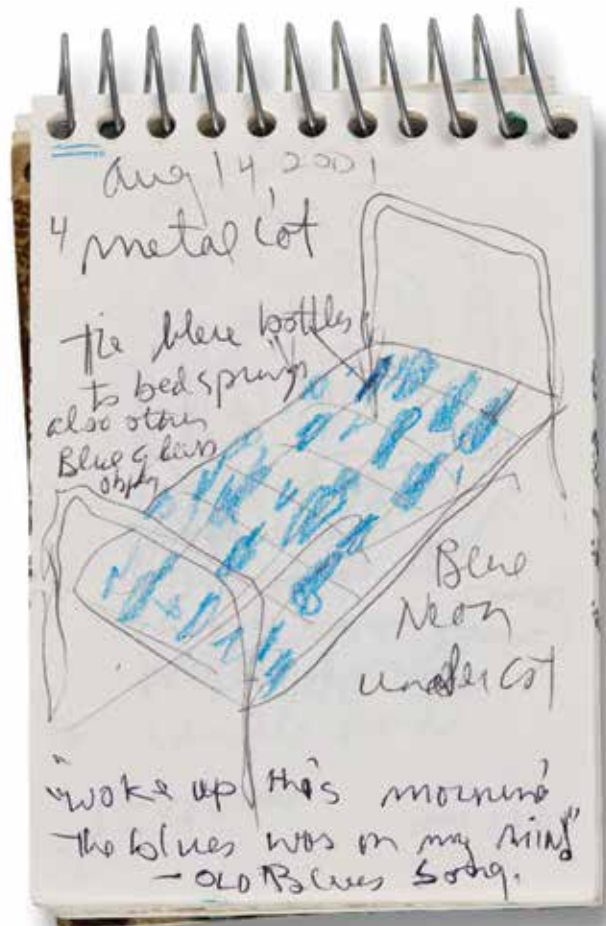 Aug 14, 2001
4 metal cot
Tie blue bottles
to bedsprings
also other
Blue Glass
Blue
Neon
under cot
"woke up this morning
the blues was on my mind"
- OLD Blues Song.